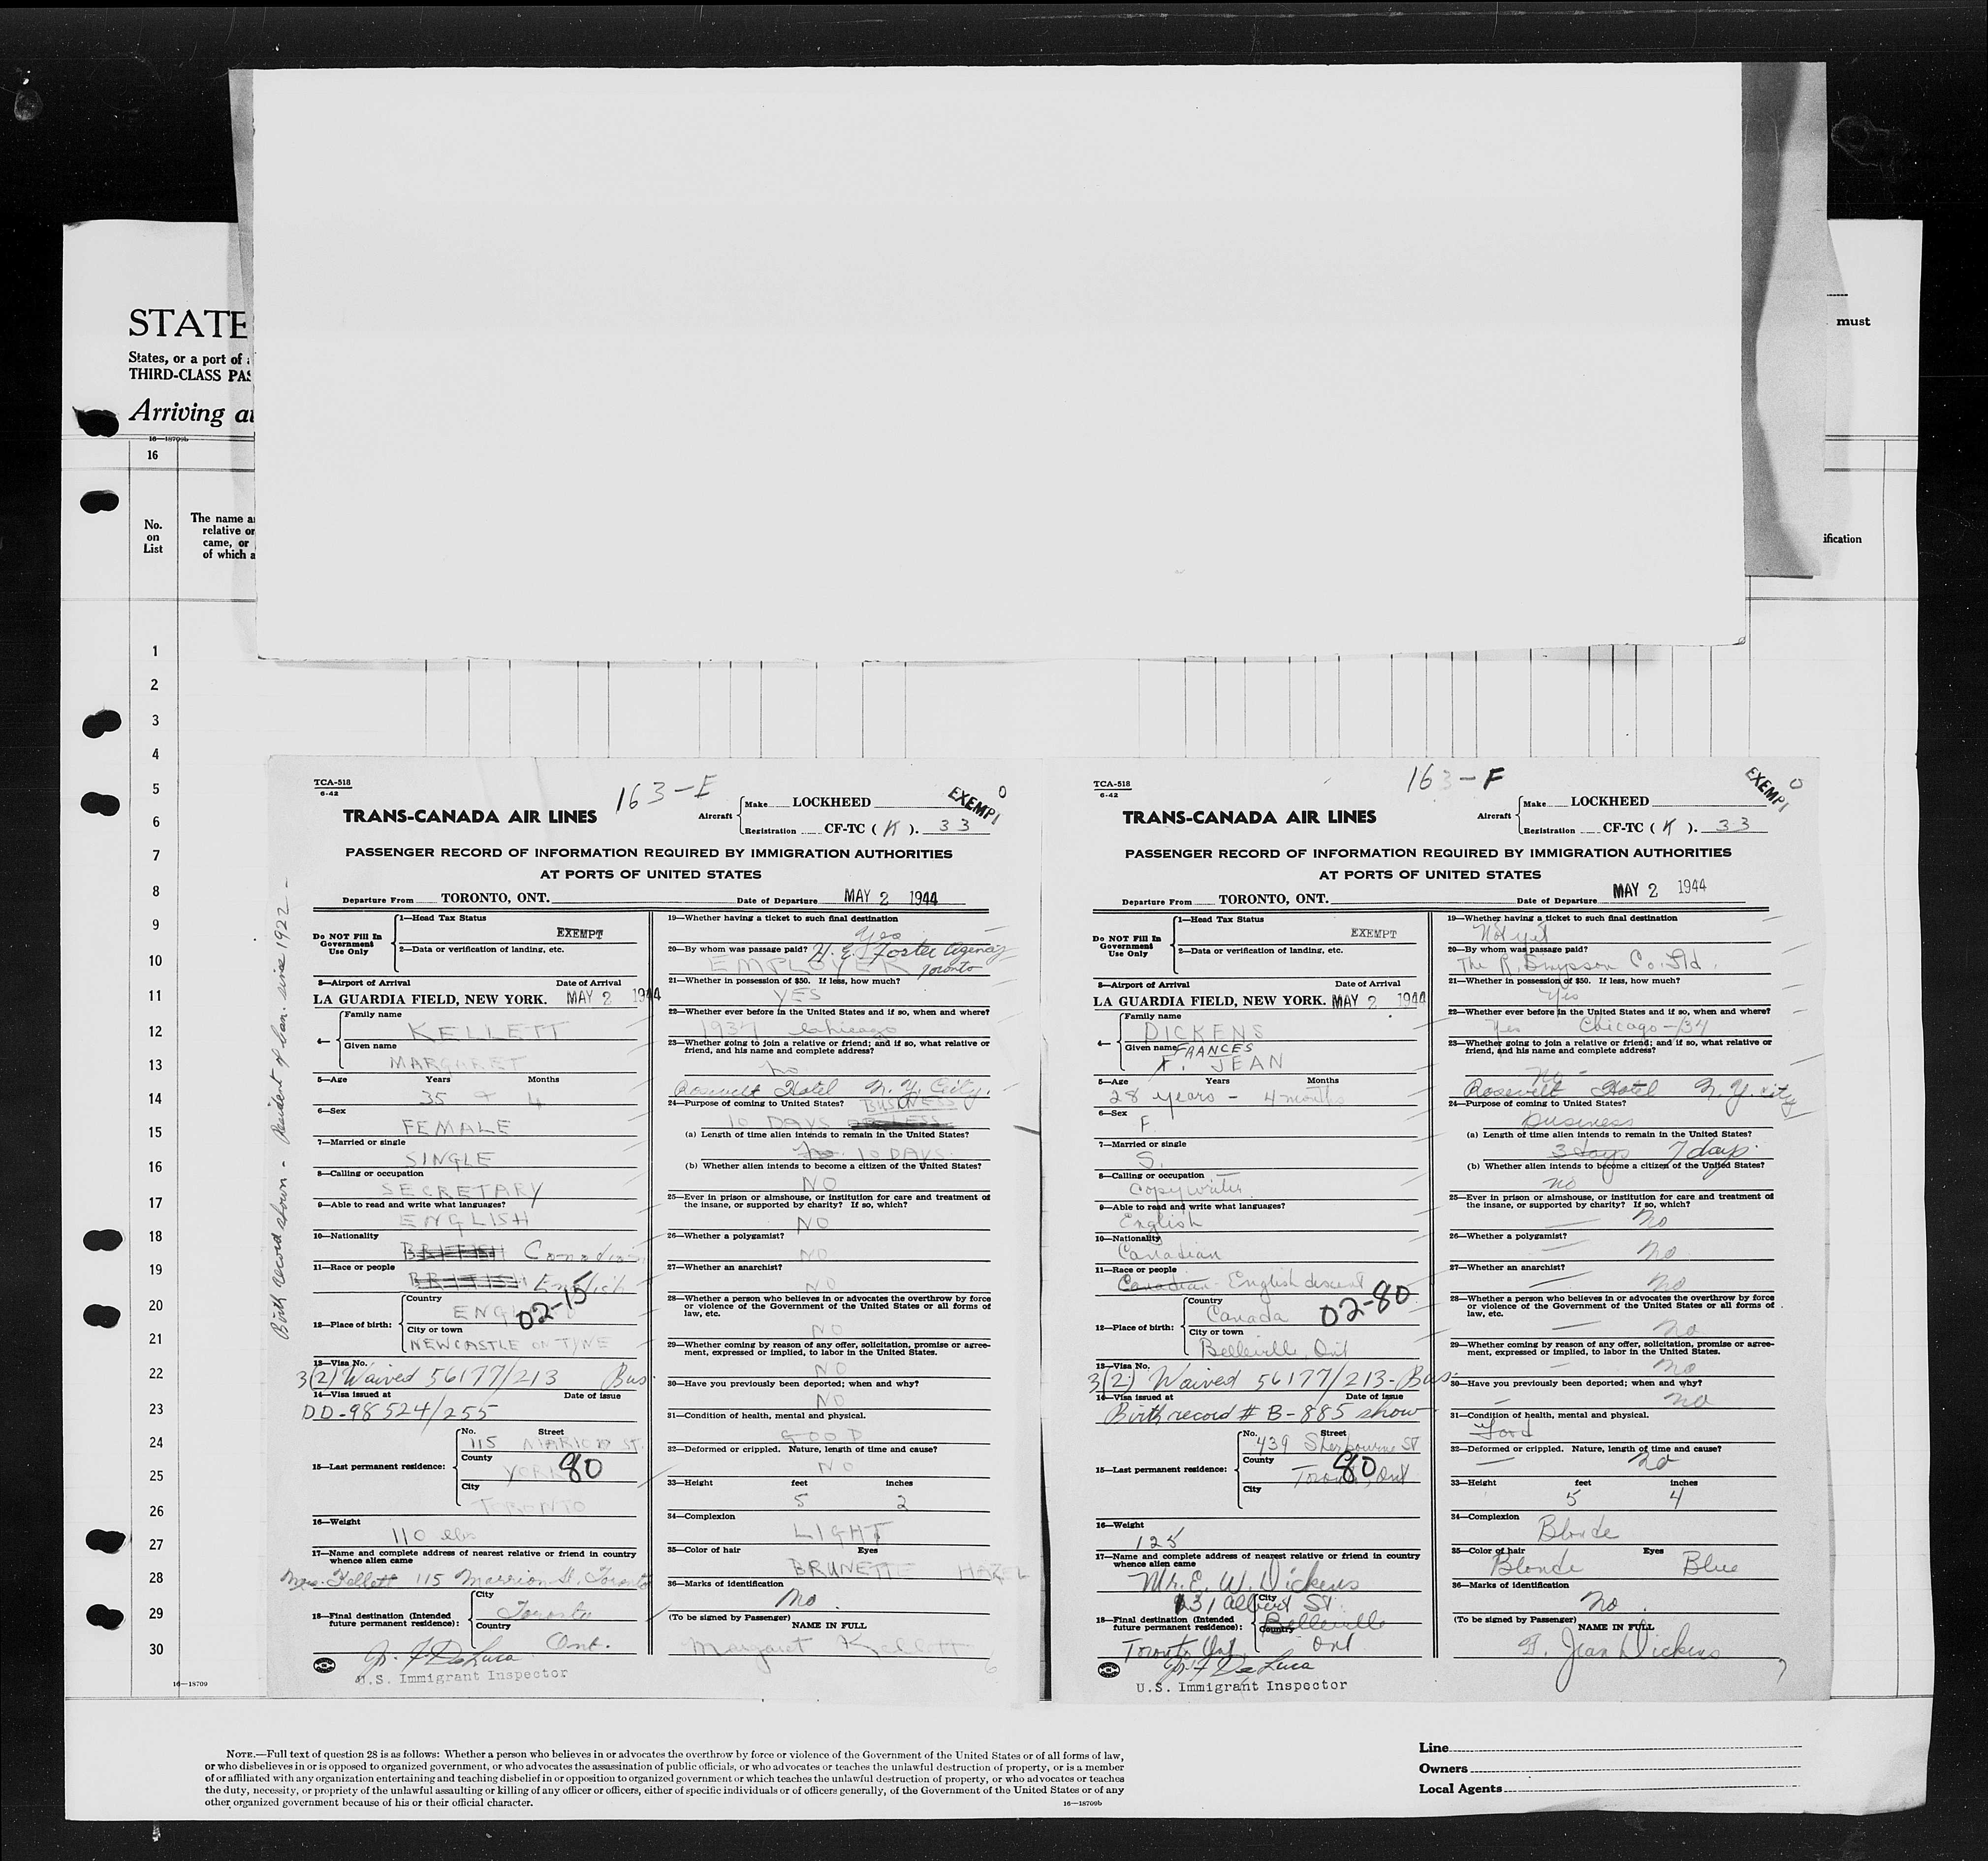 STATE
States, or a port of
THIRD-CLASS PAS
Arriving at
16—18709b
16
must
No.
on
List
The name a
relative or
came, or
of which a
ification
1
2
3
4
5
6
7
8
9
10
11
12
13
14
15
16
17
18
19
20
21
22
23
24
25
26
27
28
29
30
16—18709
Birth record shown - Resident of Can. since 1922 -
TCA-518
6-42
163-E
EXEMPT
0
TRANS-CANADA AIR LINES
Aircraft
Make LOCKHEED
Registration CF-TC ( K ). 33
PASSENGER RECORD OF INFORMATION REQUIRED BY IMMIGRATION AUTHORITIES
AT PORTS OF UNITED STATES
Departure From TORONTO, ONT. Date of Departure MAY 2 1944
Do NOT Fill In
Government
Use Only
1—Head Tax Status
EXEMPT
2—Data or verification of landing, etc.
3—Airport of Arrival Date of Arrival
LA GUARDIA FIELD, NEW YORK. MAY 2 1944
4—
Family name
KELLETT
Given name
MARGARET
5—Age Years Months
35 4
6—Sex
FEMALE
7—Married or single
SINGLE
8—Calling or occupation
SECRETARY
9—Able to read and write what languages?
ENGLISH
10—Nationality
BRITISH Canadian
11—Race or people
BRITISH English
12—Place of birth:
Country
ENG 02-15
City or town
NEWCASTLE ON TYNE
13—Visa No.
3(2) Waived 56177/213 Bus.
14—Visa issued at Date of issue
DD-98524/255
15—Last permanent residence:
No. Street
115 MARION ST.
County
YORK 80
City
TORONTO
16—Weight
110 lbs
17—Name and complete address of nearest relative or friend in country
whence alien came
Mrs. Kellett 115 Marrion St. Toronto
18—Final destination (Intended
future permanent residence):
City
Toronto
Country
Ont.
De Luca
U.S. Immigrant Inspector
19—Whether having a ticket to such final destination
Yes
20—By whom was passage paid? H. E. Foster Agency
EMPLOYER Toronto
21—Whether in possession of $50. If less, how much?
YES
22—Whether ever before in the United States and if so, when and where?
1937 Chicago
23—Whether going to join a relative or friend; and if so, what relative or
friend, and his name and complete address?
No
Roosevelt Hotel N. Y. City.
24—Purpose of coming to United States? BUSINESS
10 DAYS
(a) Length of time alien intends to remain in the United States?
10 DAYS.
(b) Whether alien intends to become a citizen of the United States?
NO
25—Ever in prison or almshouse, or institution for care and treatment of
the insane, or supported by charity? If so, which?
NO
26—Whether a polygamist?
NO
27—Whether an anarchist?
NO
28—Whether a person who believes in or advocates the overthrow by force
or violence of the Government of the United States or all forms of
law, etc.
NO
29—Whether coming by reason of any offer, solicitation, promise or agree-
ment, expressed or implied, to labor in the United States.
NO
30—Have you previously been deported; when and why?
NO
31—Condition of health, mental and physical.
GOOD
32—Deformed or crippled. Nature, length of time and cause?
NO
33—Height feet inches
5 2
34—Complexion
LIGHT
35—Color of hair Eyes
BRUNETTE HAZEL
36—Marks of identification
No
(To be signed by Passenger) NAME IN FULL
Margaret Kellett
6
TCA-518
6-42
163-F
EXEMPT
0
TRANS-CANADA AIR LINES
Aircraft
Make LOCKHEED
Registration CF-TC ( K ). 33
PASSENGER RECORD OF INFORMATION REQUIRED BY IMMIGRATION AUTHORITIES
AT PORTS OF UNITED STATES
Departure From TORONTO, ONT. Date of Departure MAY 2 1944
Do NOT Fill In
Government
Use Only
1—Head Tax Status
EXEMPT
2—Data or verification of landing, etc.
3—Airport of Arrival Date of Arrival
LA GUARDIA FIELD, NEW YORK. MAY 2 1944
4—
Family name
DICKENS
Given name FRANCES
F. JEAN
5—Age Years Months
28 years - 4 months
6—Sex
F.
7—Married or single
S.
8—Calling or occupation
Copywriter
9—Able to read and write what languages?
English
10—Nationality
Canadian
11—Race or people
Canadian - English descent
12—Place of birth:
Country
Canada 02-80
City or town
Belleville, Ont
13—Visa No.
3(2) Waived 56177/213- Bus.
14—Visa issued at Date of issue
Birth record # B-885 show
15—Last permanent residence:
No. Street
439 Sherbourne St
County
Toronto, Ont 80
City
16—Weight
125
17—Name and complete address of nearest relative or friend in country
whence alien came
Mr. E. W. Dickens
131 Albert St.
18—Final destination (Intended
future permanent residence):
City
Belleville
Country
Ont
Toronto Ont
De Luca
U.S. Immigrant Inspector
19—Whether having a ticket to such final destination
Not yet
20—By whom was passage paid?
The R. Simpson Co. Ltd.
21—Whether in possession of $50. If less, how much?
Yes
22—Whether ever before in the United States and if so, when and where?
Yes Chicago-/34
23—Whether going to join a relative or friend; and if so, what relative or
friend, and his name and complete address?
No -
Roosevelt Hotel N. Y. City
24—Purpose of coming to United States?
Business
(a) Length of time alien intends to remain in the United States?
3 days 7 days.
(b) Whether alien intends to become a citizen of the United States?
no
25—Ever in prison or almshouse, or institution for care and treatment of
the insane, or supported by charity? If so, which?
— No
26—Whether a polygamist?
— No
27—Whether an anarchist?
— No
28—Whether a person who believes in or advocates the overthrow by force
or violence of the Government of the United States or all forms of
law, etc.
— No
29—Whether coming by reason of any offer, solicitation, promise or agree-
ment, expressed or implied, to labor in the United States.
— No
30—Have you previously been deported; when and why?
— No
31—Condition of health, mental and physical.
Good
32—Deformed or crippled. Nature, length of time and cause?
— No
33—Height feet inches
5 4
34—Complexion
Blonde
35—Color of hair Eyes
Blonde Blue
36—Marks of identification
No.
(To be signed by Passenger) NAME IN FULL
F. Jean Dickens
7
NOTE.—Full text of question 28 is as follows: Whether a person who believes in or advocates the overthrow by force or violence of the Government of the United States or of all forms of law,
or who disbelieves in or is opposed to organized government, or who advocates the assassination of public officials, or who advocates or teaches the unlawful destruction of property, or is a member
of or affiliated with any organization entertaining and teaching disbelief in or opposition to organized government or which teaches the unlawful destruction of property, or who advocates or teaches
the duty, necessity, or propriety of the unlawful assaulting or killing of any officer or officers, either of specific individuals or of officers generally, of the Government of the United States or of any
other organized government because of his or their official character.
16—18709b
Line
Owners
Local Agents